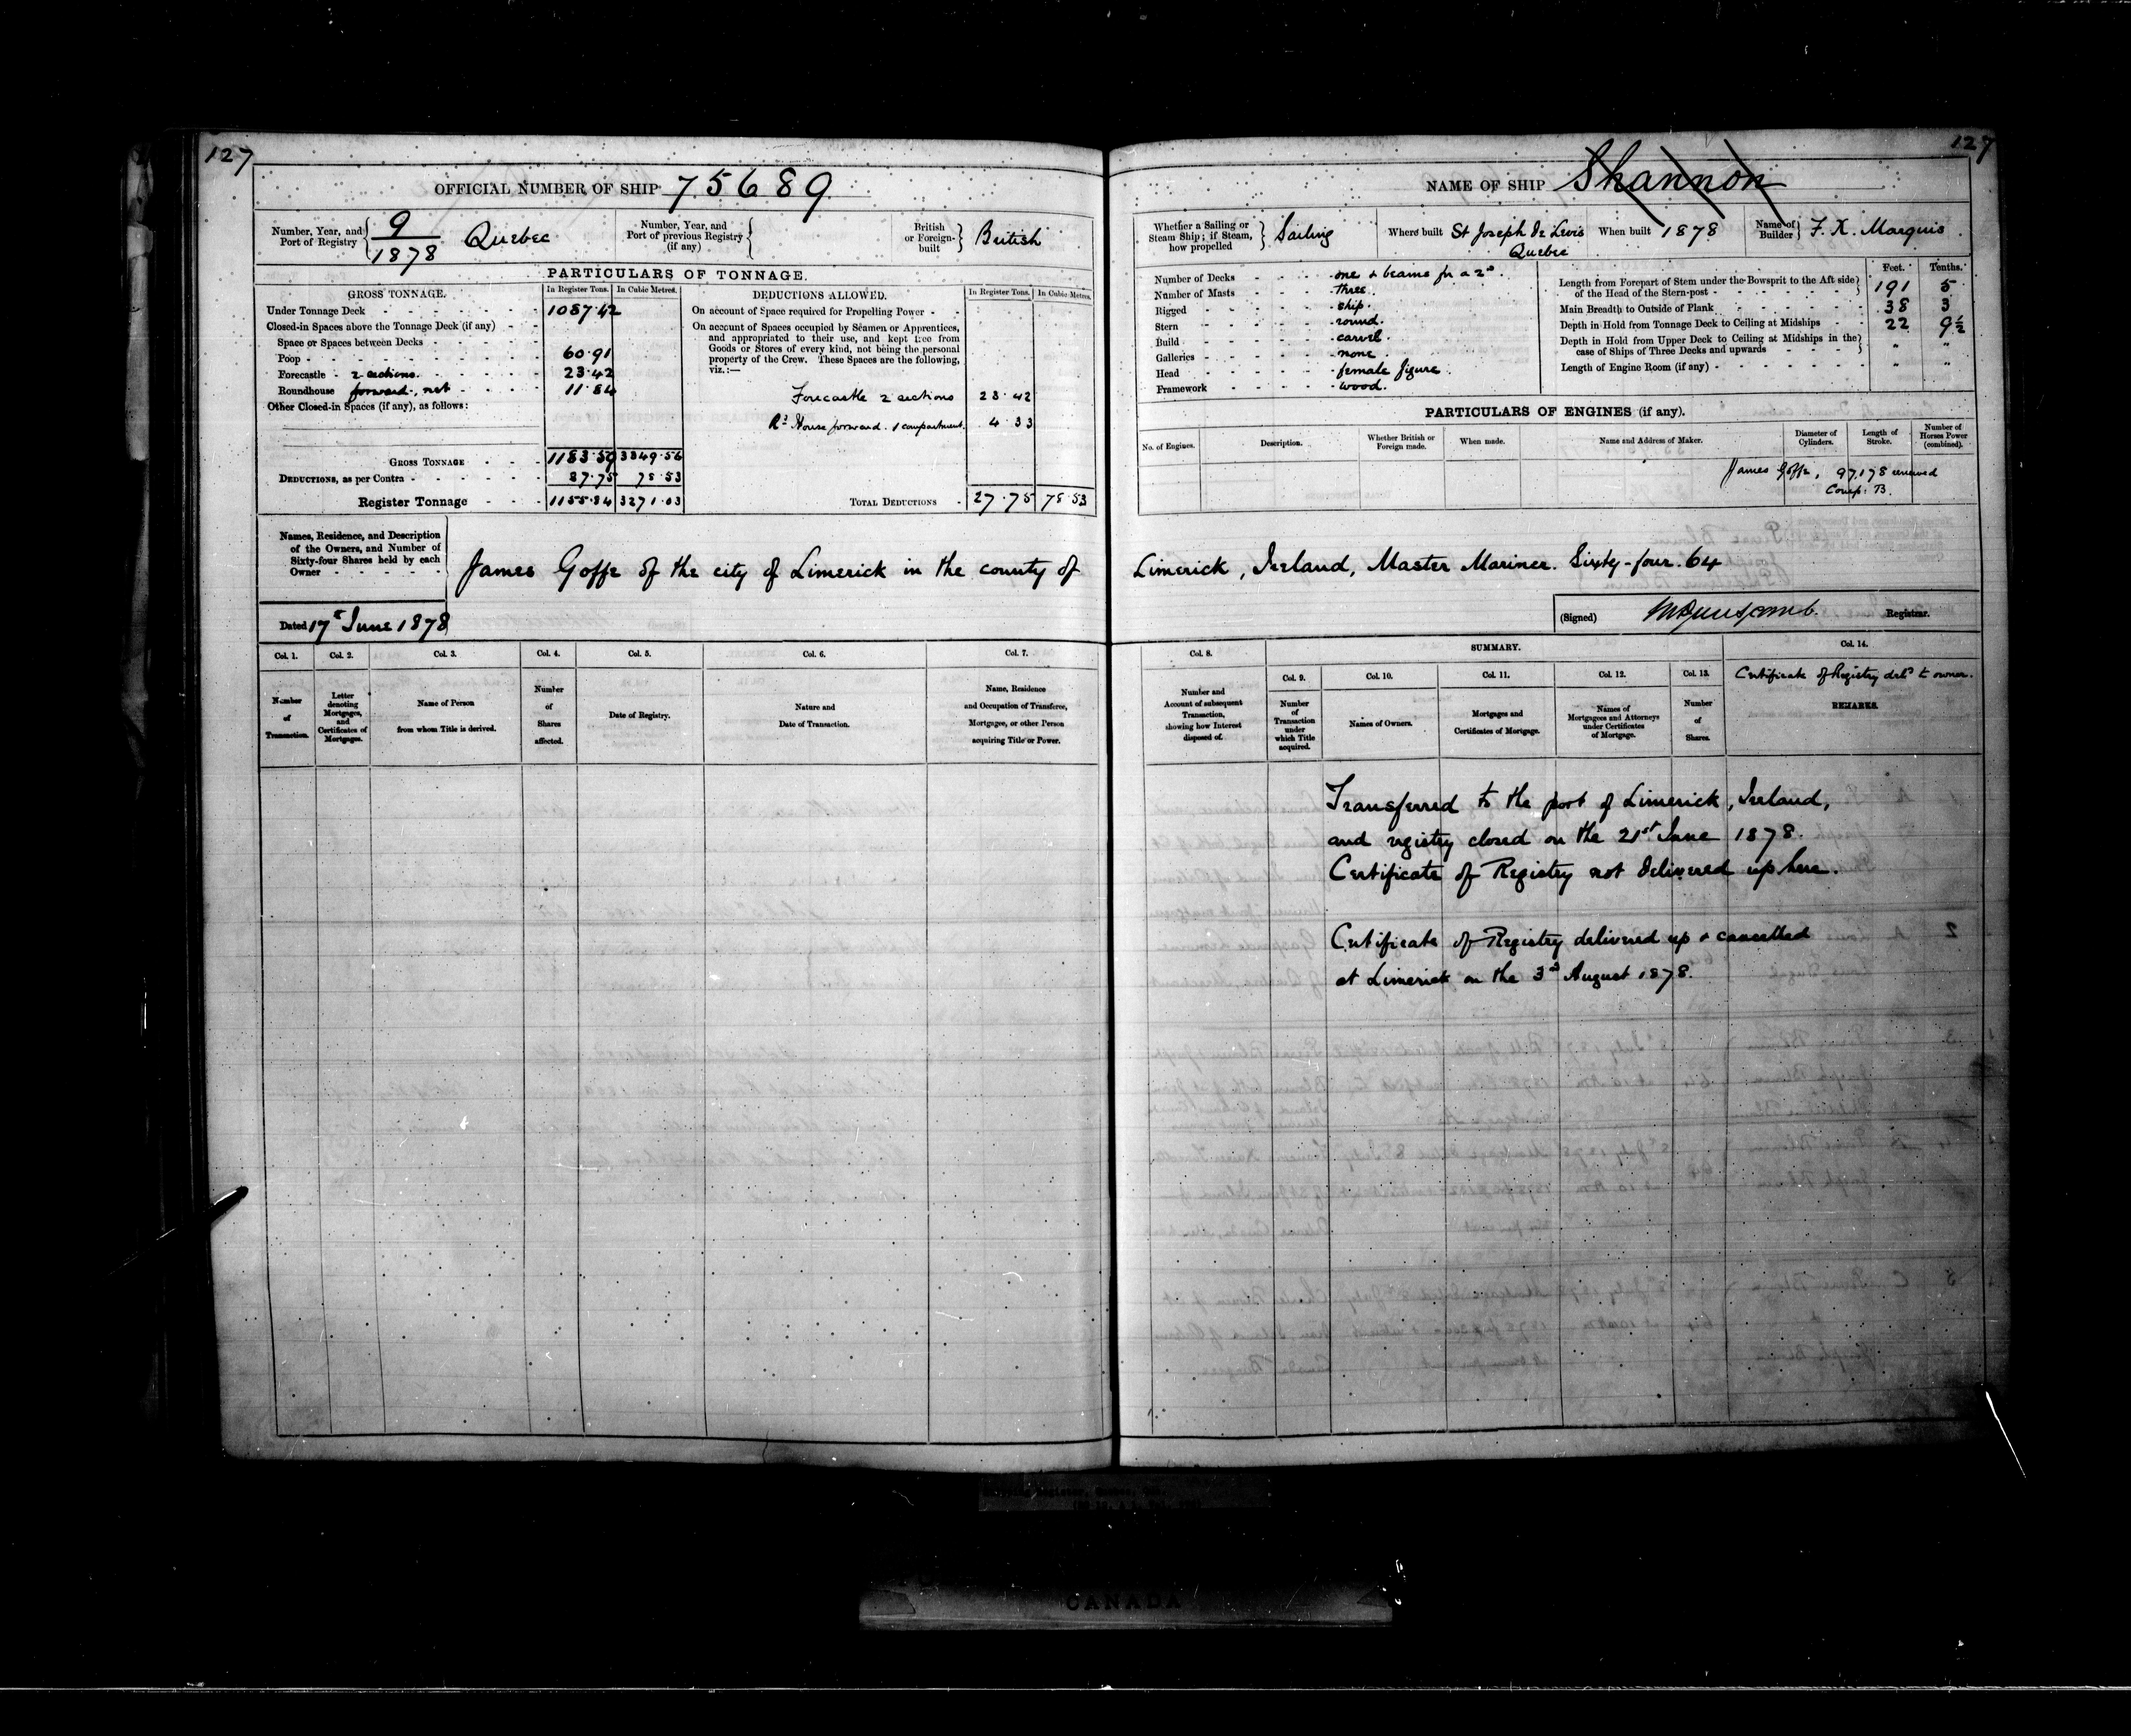 127
OFFICIAL NUMBER OF SHIP 75689
Number, Year, and Port of Registry 9/1878 Quebec
Number, Year, and Port of previous Registry (if any)
British or Foreign-built British
PARTICULARS OF TONNAGE.
GROSS TONNAGE. In Register Tons. In Cubic Metres.
Under Tonnage Deck 1087.42
Closed-in Spaces above the Tonnage Deck (if any)
Space or Spaces between Decks
Poop 60.91
Forecastle 2 sections 23.42
Roundhouse forward, net 11.84
Other Closed-in Spaces (if any), as follows:
GROSS TONNAGE 1183.59 3349.56
DEDUCTIONS, as per Contra 27.75 78.53
Register Tonnage 1155.84 3271.03
DEDUCTIONS ALLOWED. In Register Tons. In Cubic Metres.
On account of Space required for Propelling Power
On account of Spaces occupied by Seamen or Apprentices,
and appropriated to their use, and kept free from
Goods or Stores of every kind, not being the personal
property of the Crew. These Spaces are the following,
viz.:—
Forecastle 2 sections 23.42
Rd House forward. 1 compartment 4.33
TOTAL DEDUCTIONS 27.75 78.53
Names, Residence, and Description
of the Owners, and Number of
Sixty-four Shares held by each
Owner
James Goffe of the city of Limerick in the county of
Dated 17th June 1878
Col. 1. Col. 2. Col. 3. Col. 4. Col. 5. Col. 6. Col. 7.
Number of Transaction.
Letter denoting Mortgages, and Certificates of Mortgages.
Name of Person from whom Title is derived.
Number of Shares affected.
Date of Registry.
Nature and Date of Transaction.
Name, Residence and Occupation of Transferee, Mortgagee, or other Person acquiring Title or Power.
127
NAME OF SHIP Shannon
Whether a Sailing or Steam Ship; if Steam, how propelled Sailing
Where built St Joseph de Levis Quebec
When built 1878
Name of Builder F. X. Marquis
Number of Decks one & beams for a 2d
Number of Masts three.
Rigged ship.
Stern round.
Build carvel.
Galleries none.
Head female figure.
Framework wood.
Feet. Tenths.
Length from Forepart of Stem under the Bowsprit to the Aft side of the Head of the Stern-post 191 5
Main Breadth to Outside of Plank 38 3
Depth in Hold from Tonnage Deck to Ceiling at Midships 22 9½
Depth in Hold from Upper Deck to Ceiling at Midships in the case of Ships of Three Decks and upwards " "
Length of Engine Room (if any) " "
PARTICULARS OF ENGINES (if any).
No. of Engines. Description. Whether British or Foreign made. When made. Name and Address of Maker. Diameter of Cylinders. Length of Stroke. Number of Horses Power (combined).
James Goffe,
Limerick, Ireland, Master Mariner. Sixty-four. 64
(Signed) Registrar.
Col. 8. SUMMARY. Col. 14.
Certificate of Registry deld to owner.
Col. 9. Col. 10. Col. 11. Col. 12. Col. 13.
Number and Account of subsequent Transaction, showing how Interest disposed of.
Number of Transaction under which Title acquired.
Names of Owners.
Mortgages and Certificates of Mortgage.
Names of Mortgagees and Attorneys under Certificates of Mortgage.
Number of Shares.
REMARKS.
Transferred to the port of Limerick, Ireland,
and registry closed on the 21st June 1878.
Certificate of Registry not delivered up here.
Certificate of Registry delivered up & cancelled
at Limerick on the 3d August 1878.
CANADA